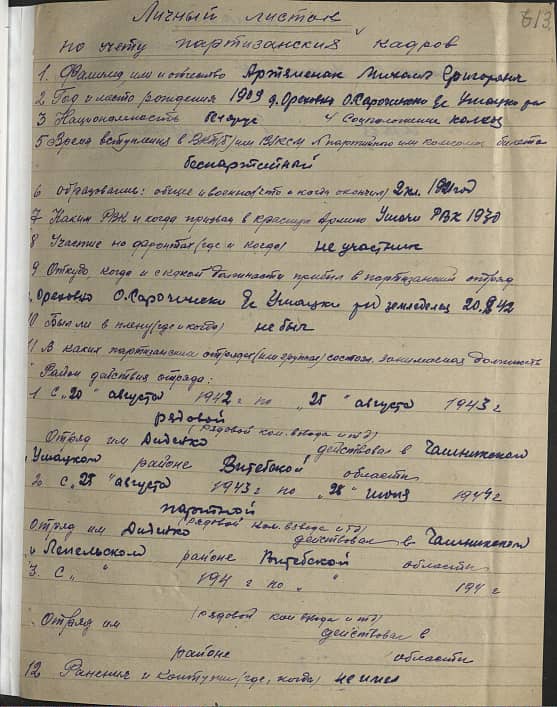 613
Личный листок
по учету партизанских кадров
1. Фамилия имя и отчество Артяменак Михаил Григорович
2 Год и место рождения 1909 д. Ореховно О. Сарочински Ес Ушацки р-н
3 Национальность Беларус 4 Соцположение колхоз
5 Время вступления в ВКП(б) или ВЛКСМ № партийного или комсомол билета
беспартейный
6 образование: общее и военное (что и когда окончил) 2 кл. 1921 год
7 Каким РВК и когда призван в красную Армию Ушачи РВК 1930
8 Участие на фронтах (где и когда) не участник
9 Откуда когда и с какой должности прибыл в партизанский отряд
Ореховно О. Сарочински Ес Ушацки р-н земледелец 20.8.42
10 был ли в плену (где и когда) не был
11 В каких партизанских отрядах (или группах) состоял, занимаемая должность
Район действия отряда:
1 С "20" августа 1942 г по "25" августа 1943 г
рядовой
(рядовой ком. взвода и тд)
Отряд им Диденко действовал в Чашникском
Ушацком районе Витебской области
2. С "25" августа 1943 г по "28" июня 1944 г
(рядовой ком. взвода и тд)
Отряд им Диденко действовал в Чашникском
и Лепельском районе Витебской области
3. С " " 194 г по " " 194 г
(рядовой ком взвода и тд)
Отряд им действовал в
районе области
12 Ранения и контузии (где, когда) не имел